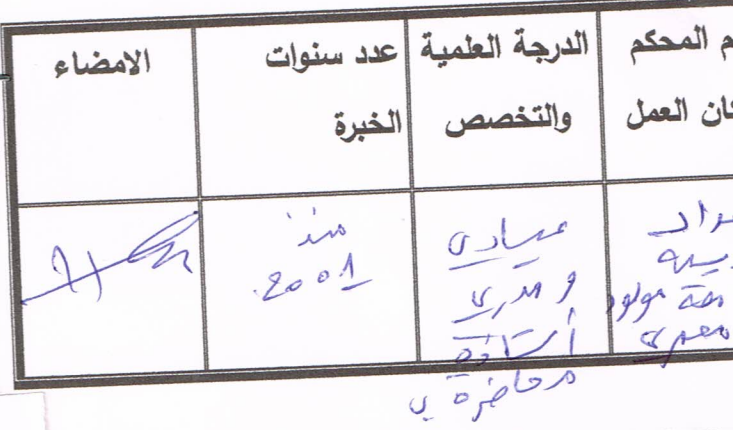 م المحكم
كان العمل
الدرجة العلمية
والتخصص
عدد سنوات
الخبرة
الامضاء
مولود
معمري
عيادي
و مدرسي
أستاذة
محاضرة ب
منذ
2001